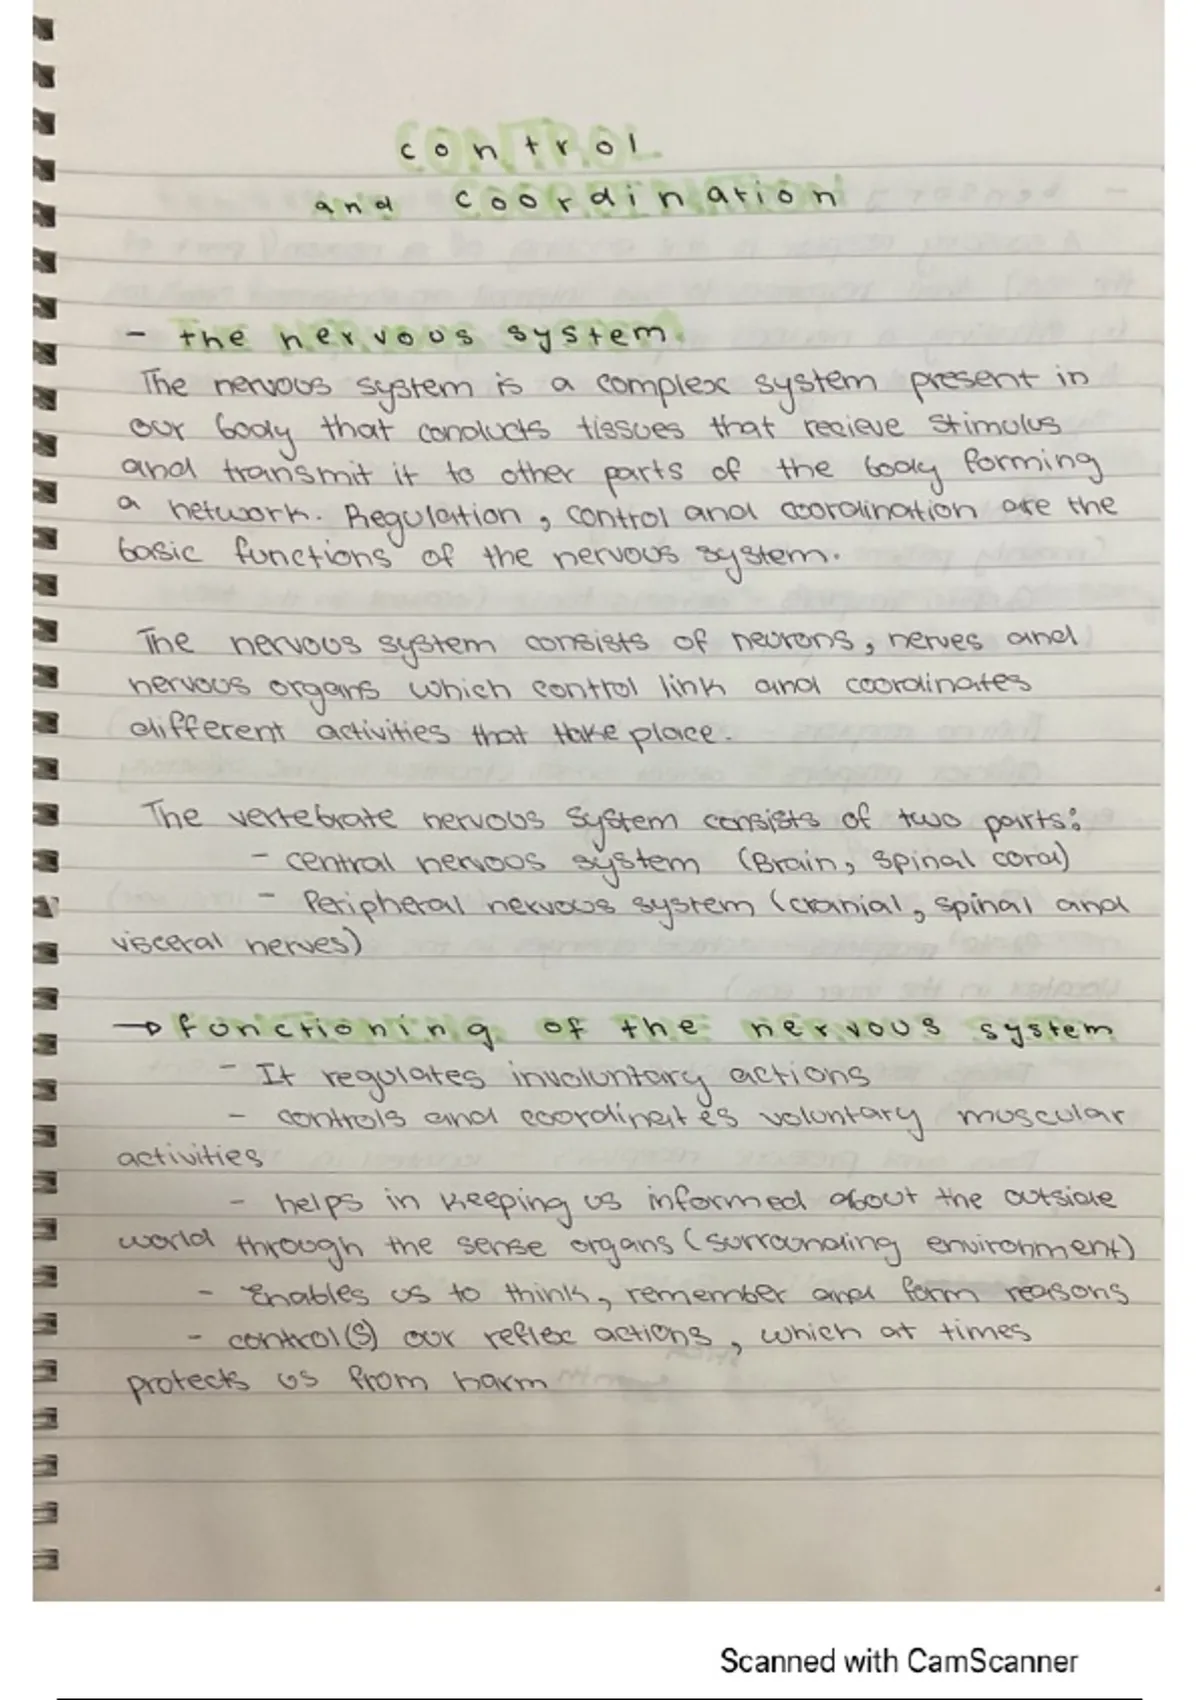 control
and coordination
- the nervous system.
The nervous system is a complex system present in
our body that conducts tissues that recieve stimulus
and transmit it to other parts of the body forming
a network. Regulation, control and coordination are the
basic functions of the nervous system.
The nervous system consists of neurons, nerves and
nervous organs which control link and coordinates
different activities that take place.
The vertebrate nervous system consists of two parts:
- central nervous system (Brain, spinal cord)
- Peripheral nervous system (cranial, spinal and
visceral nerves)
→ functioning of the nervous system
- It regulates involuntary actions
- controls and coordinates voluntary muscular
activities
- helps in keeping us informed about the outside
world through the sense organs (surrounding environment)
- Enables us to think, remember and form reasons
- control(s) our reflex actions, which at times
protects us from harm
Scanned with CamScanner